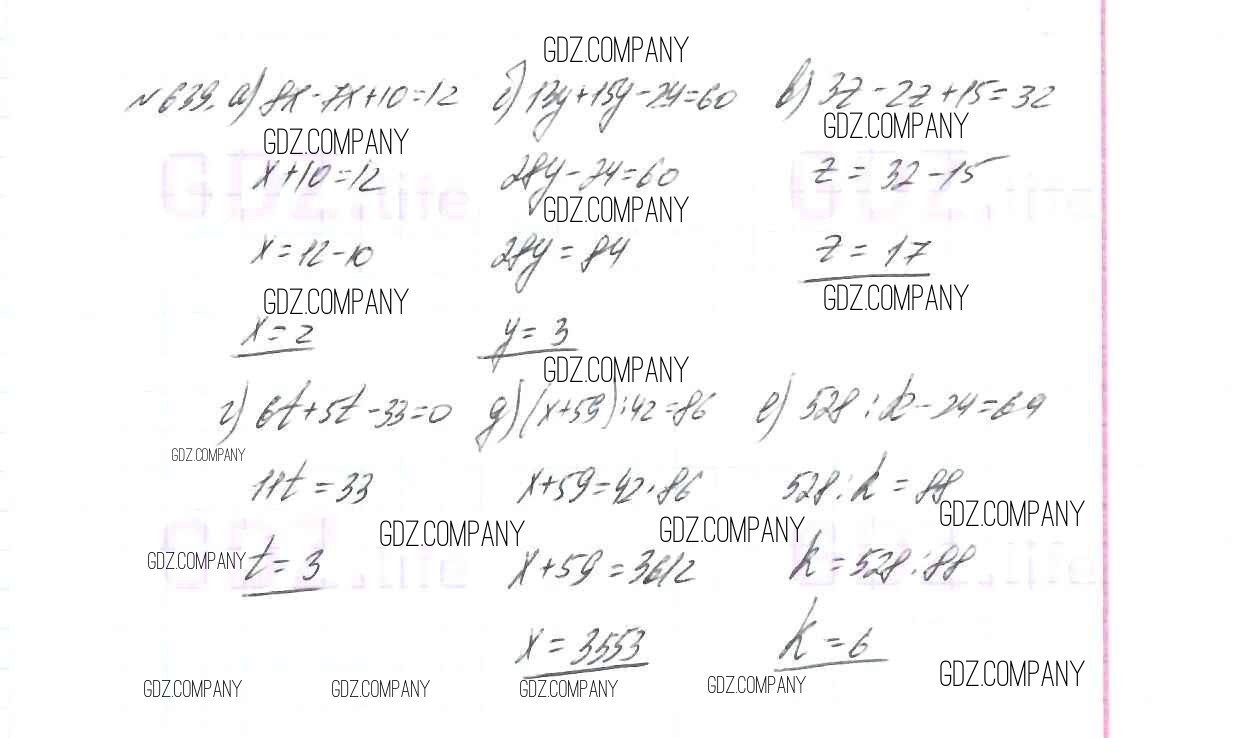 GDZ.COMPANY
№639. а) 8x-7x+10=12 б) 13y+15y-24=60 в) 3z-2z+15=32
GDZ.COMPANY GDZ.COMPANY
GDZ.life GDZ.life
x+10=12 28y-24=60 z=32-15
GDZ.COMPANY
x=12-10 28y=84 z=17
GDZ.COMPANY GDZ.COMPANY
x=2 y=3
GDZ.COMPANY
г) 6t+5t-33=0 д) (x+59):42=86 е) 528:k-24=64
GDZ.COMPANY
11t=33 x+59=42·86 528:k=88
GDZ.COMPANY GDZ.COMPANY GDZ.COMPANY
GDZ.life GDZ.life
GDZ.COMPANY t=3 x+59=3612 k=528:88
x=3553 k=6
GDZ.COMPANY GDZ.COMPANY GDZ.COMPANY GDZ.COMPANY GDZ.COMPANY